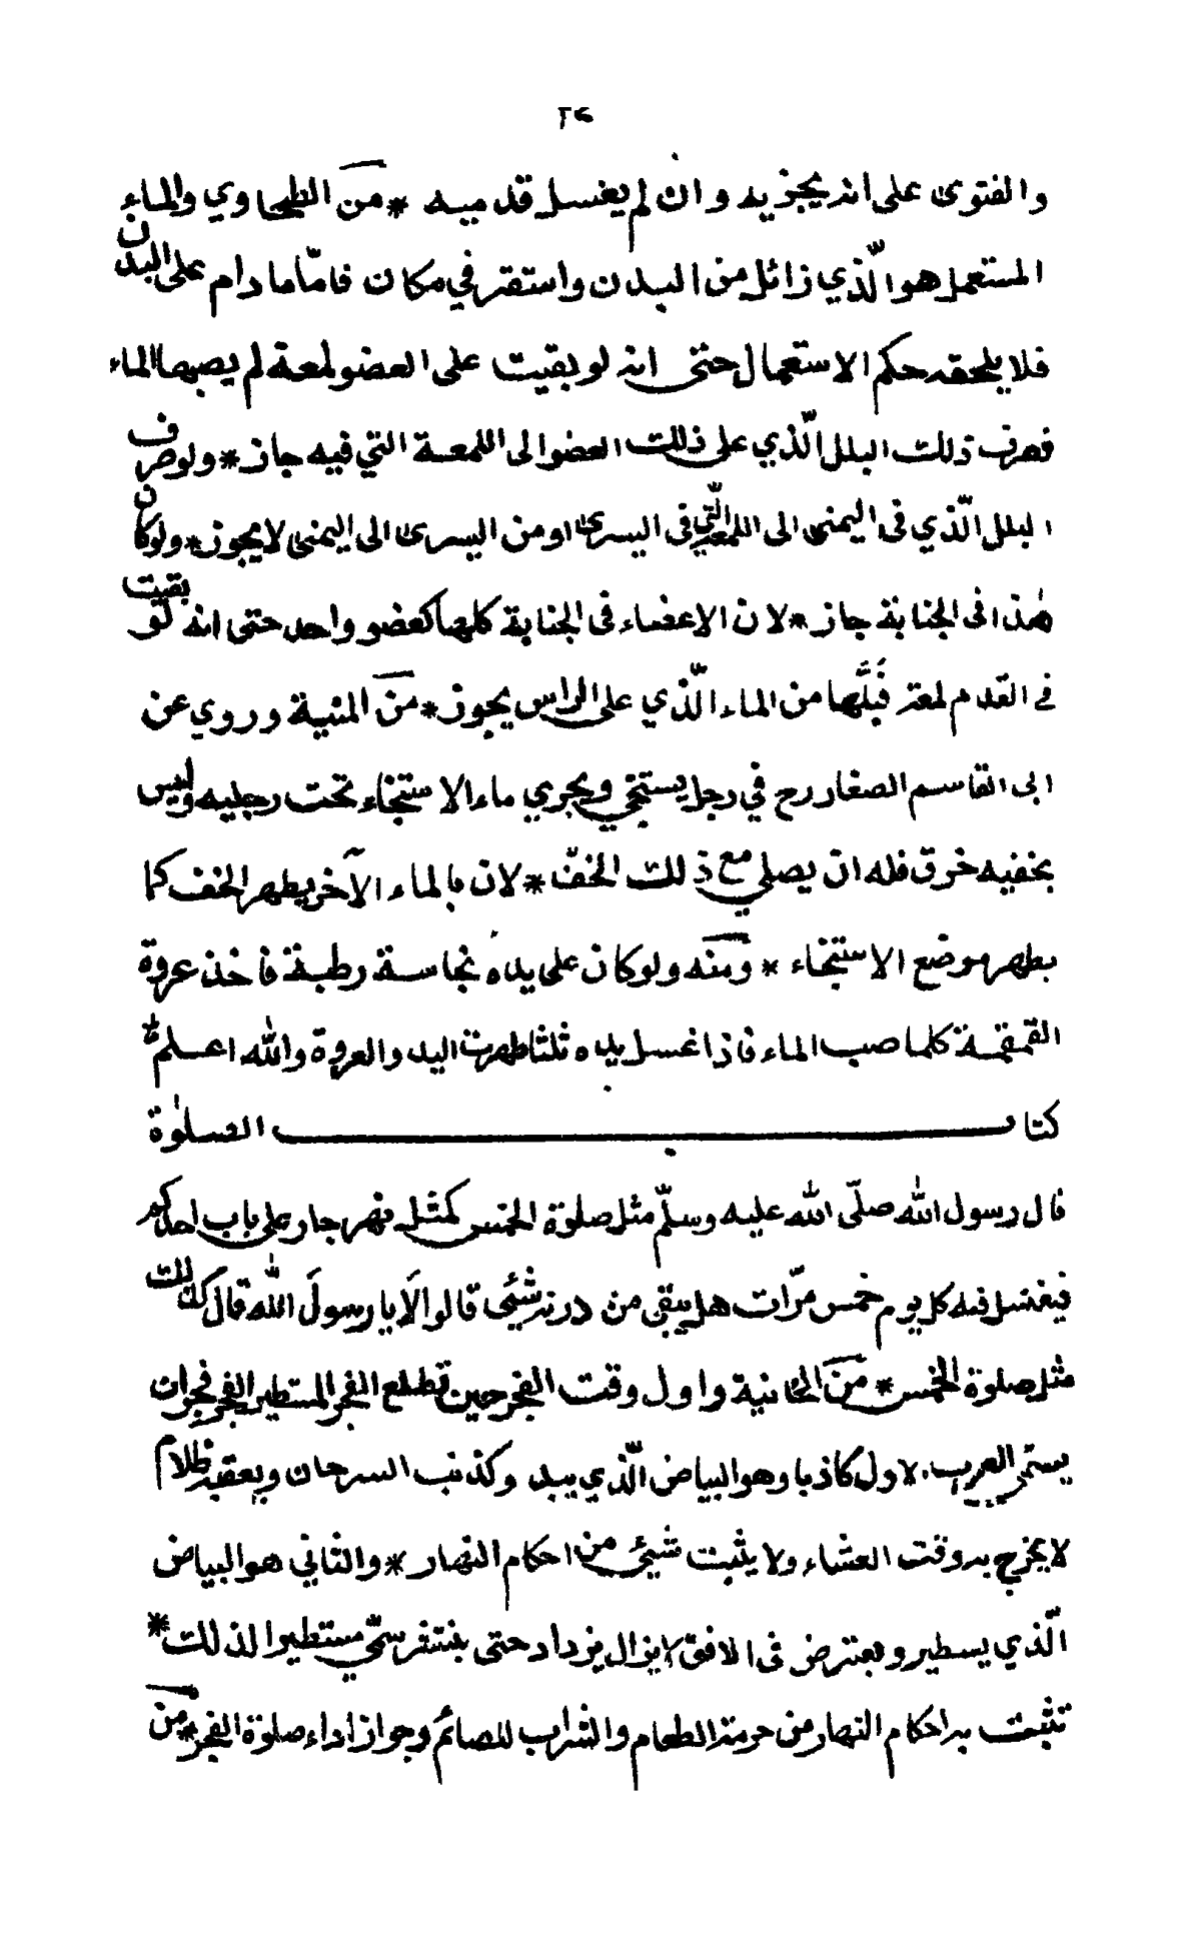 والفتوى على انه يجزيه وان لم يغسل قدميه * من الطحاوي والماء
المستعمل هو الّذي زائل من البدن واستقر في مكان فامّا ما دام على البدن
فلا يلحقه حكم الاستعمال حتى انه لو بقيت على العضو لمعة لم يصبها الماء
فصرف ذلك البلل الّذي على ذلك العضو الى اللمعة التي فيه جاز * ولو صرف
البلل الّذي فى اليمنى الى اللمعة الّتي فى اليسرى او من اليسرى الى اليمنى لا يجوز * ولو كان
هٰذا فى الجنابة جاز * لان الاعضاء فى الجنابة كلها كعضو واحد حتى انه لو بقيت
في القدم لمعة فَبَلَّها من الماء الّذي على الراس يجوز * من المنية وروي عن
ابى القاسم الصفار رح في رجل يستنجي ويجري ماء الاستنجاء تحت رجليه وليس
بخفيه خرق فله ان يصلي مع ذلك الخفّ * لان بالماء الآخر يطهر الخف كما
يطهر موضع الاستنجاء * ومنه ولو كان على يده نجاسة رطبة فاخذ عروة
القمقمة كلما صب الماء فاذا غسل يده ثلثا طهرت اليد والعروة والله اعلم
كتاب الصلوٰة
قال رسول الله صلّى الله عليه وسلّم مثل صلوة الخمس كمثل نهر جار على باب احدكم
فيغتسل فيه كل يوم خمس مرّات هل يبقى من درنه شيئى قالوا لَا يا رسولَ الله قال كذلك
مثل صلوة الخمس * من الخانية واول وقت الفجر حين تطلع الفجر المستطير الفجر فجران
يسمّى العرب الاول كاذبا وهو البياض الّذي يبدو كذنب السرحان ويعقبه ظلام
لا يخرج به وقت العشاء ولا يثبت شيئى من احكام النهار * والثاني هو البياض
الّذي يسطير ويعترض فى الافق لا يزال يزداد حتى ينتشر سمّي مستطيرا لذلك *
تثبت به احكام النهار من حرمة الطعام والشراب للصائم وجواز اداء صلوة الفجر * من